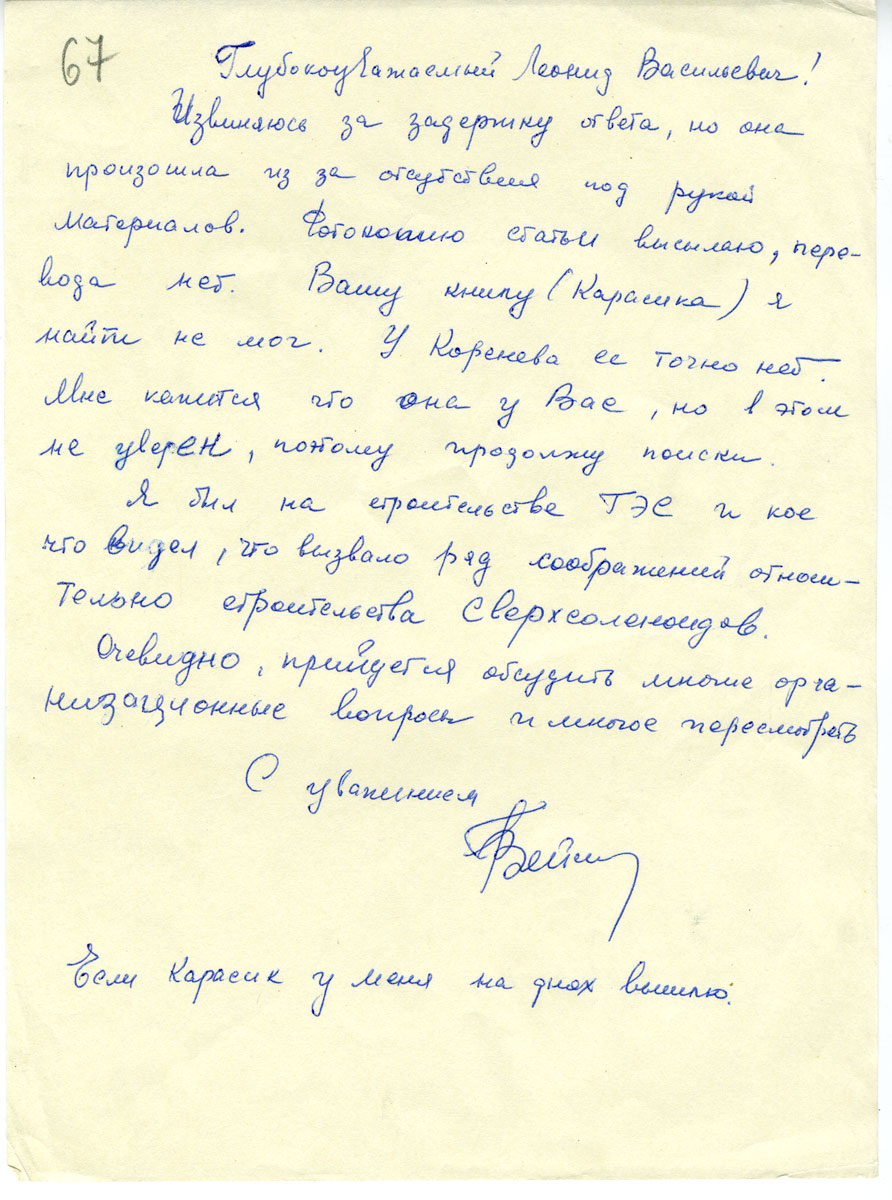 67
Глубокоуважаемый Леонид Васильевич!
Извиняюсь за задержку ответа, но она
произошла из за отсутствия под рукой
материалов. Фотокопию статьи высылаю, пере-
вода нет. Вашу книгу (Карасика) я
найти не мог. У Коренева ее точно нет.
Мне кажится что она у Вас, но в этом
не уверен, поэтому продолжу поиски.
Я был на строительстве ГЭС и кое
что видел, что вызвало ряд соображений относи-
тельно строительства Сверхсоленоидов.
Очевидно, прийдется обсудить многие орга-
низационные вопросы и многое пересмотреть
С уважением
Если Карасик у меня на днях вышлю.